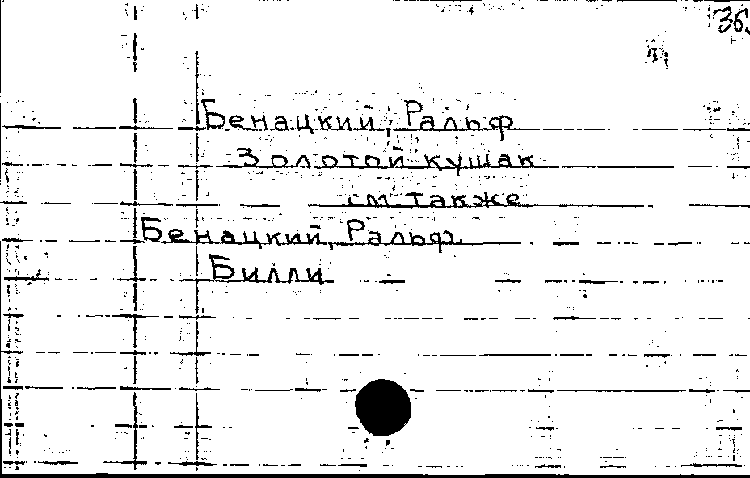 36
Бенацкий, Ральф
Золотой кушак
см также
Бенацкий, Ральф.
Билли